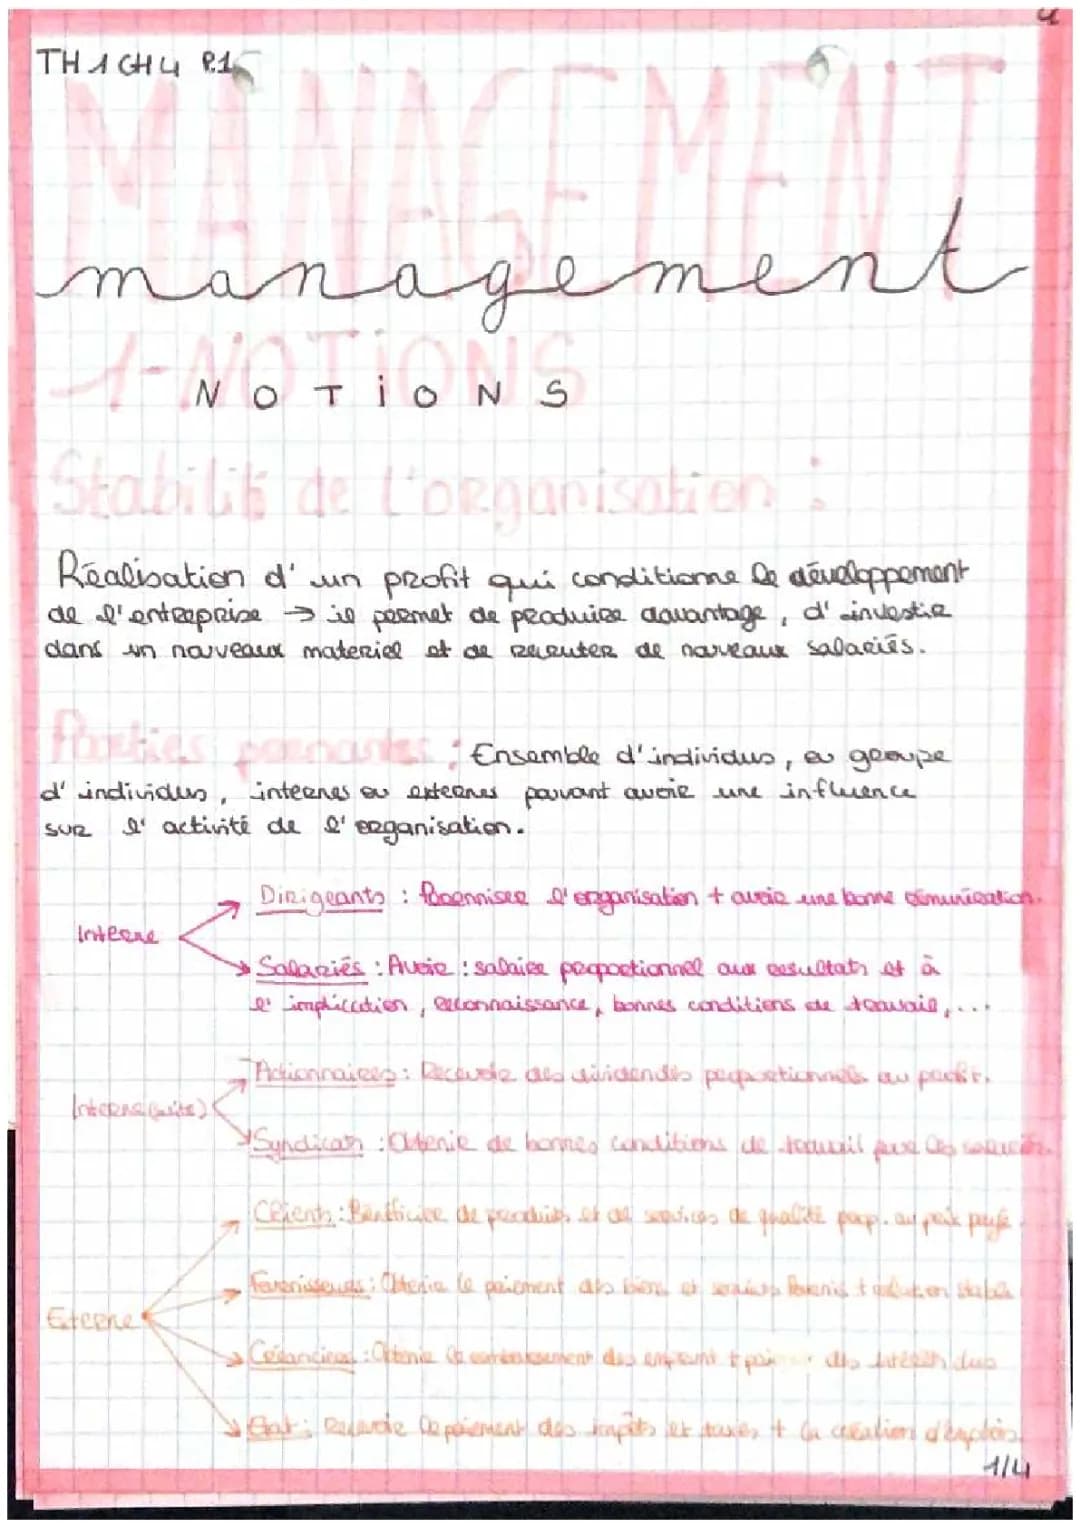 TH1CH4 P.1
MANAGEMENT
management
1-NOTIONS
NOTIONS
Stabilité de l'organisation :
Réalisation d'un profit qui conditionne le développement
de l'entreprise → il permet de produire davantage, d'investir
dans un nouveaux materiel et de recruter de nouveaux salariés.
Parties prenantes : Ensemble d'individus, ou groupe
d'individus, internes ou externes pouvant avoir une influence
sur l'activité de l'organisation.
Dirigeants : Pérenniser l'organisation + avoir une bonne rémunération.
Interne
Salariés : Avoir : salaire proportionnel aux resultats et à
l'implication, reconnaissance, bonnes conditions de travail,...
Actionnaires : Recevoir des dividendes proportionnels au profit.
Interne (suite)
Syndicats : Obtenir de bonnes conditions de travail pour les salariés.
Clients : Bénéficier de produits et de services de qualité prop. au prix payé.
Fournisseurs : Obtenir le paiement des biens et services fournis + relation stable
Externe
Créanciers : Obtenir le remboursement des emprunt + des intérêts dus
Etat : Recevoir le paiement des impôts et taxes + la création d'emplois.
1/4